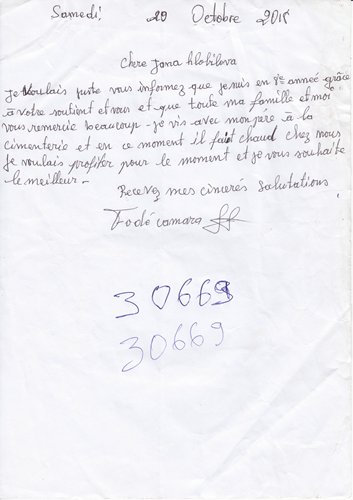 Samedi, 29 Octobre 2015
Chere Jana Hlobilova
Je Voulais juste vous informez que je suis en 8e anneé grâce
à votre soutient et vous et que toute ma famille et moi
vous remercie beaucoup. je vis avec mon pere à la
cimenterie et en ce moment il fait chaud chez nous
Je voulais profiter pour le moment et je vous souhaite
le meilleur -
Recevez mes cincerés salutations
Fodé camara
30669
30669